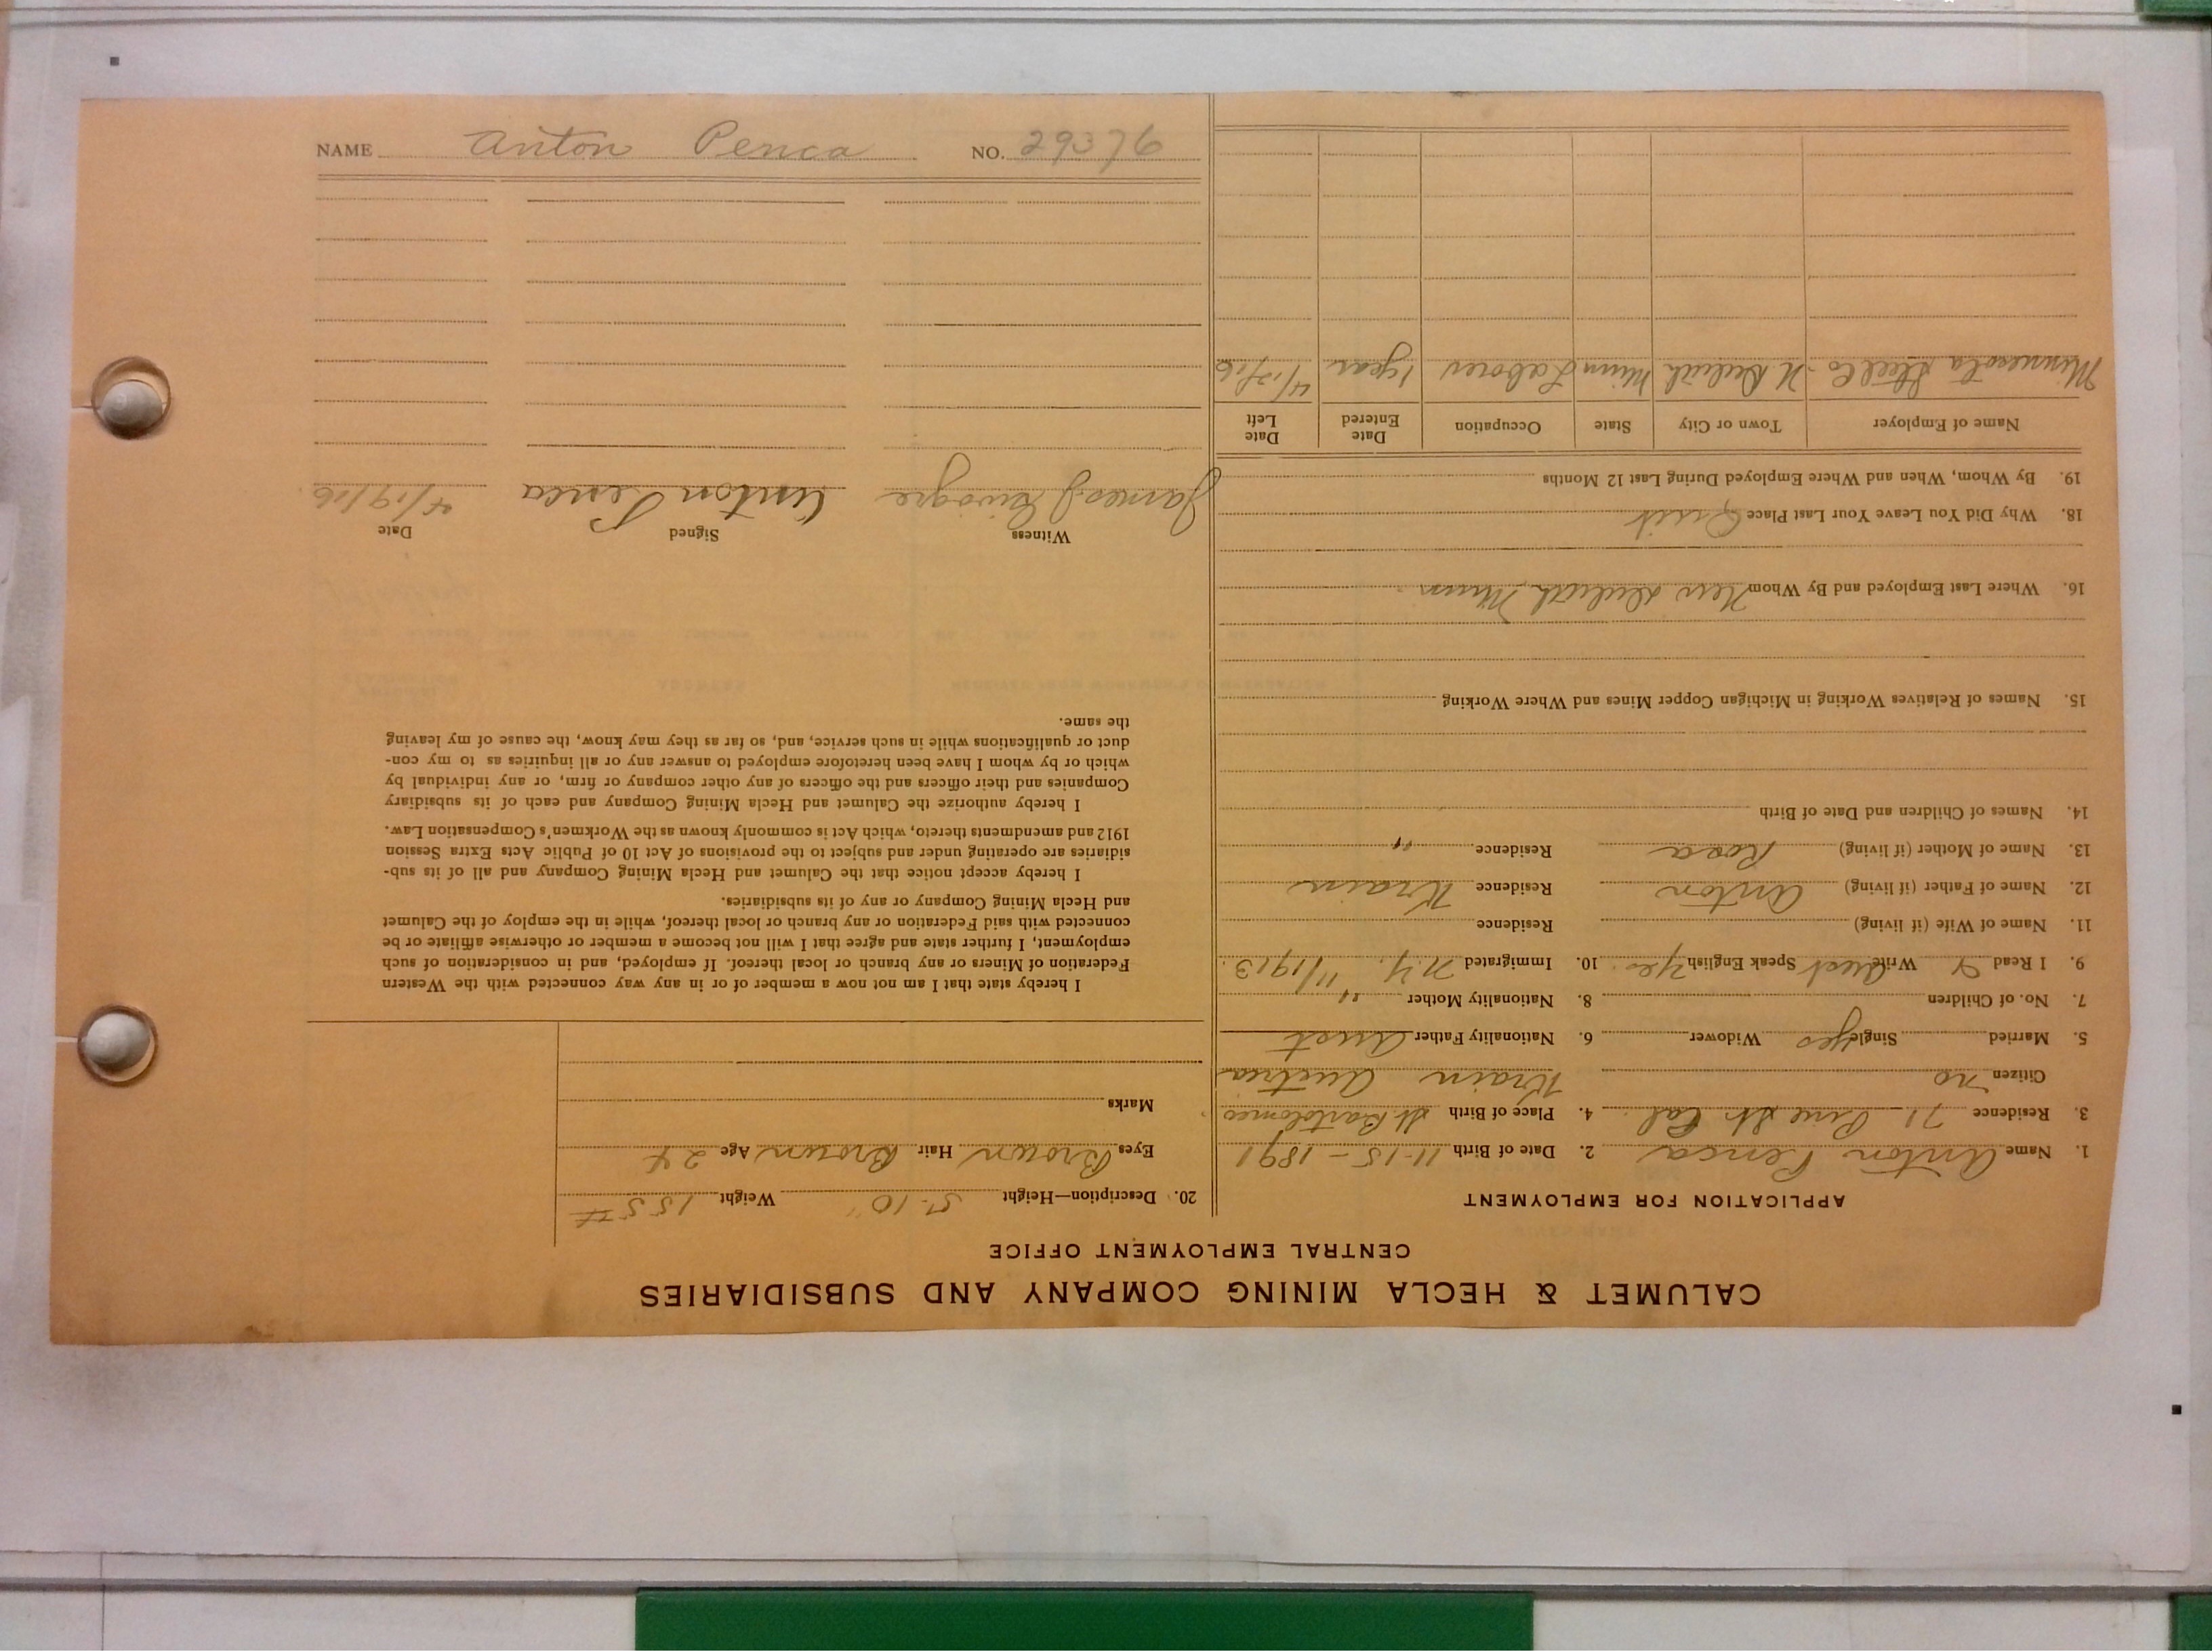 NAME Anton Penca NO. 29376
CALUMET & HECLA MINING COMPANY AND SUBSIDIARIES
CENTRAL EMPLOYMENT OFFICE
APPLICATION FOR EMPLOYMENT
1. Name Anton Penca 2. Date of Birth 11-15-1891
3. Residence 71 - Pine St. Cal. 4. Place of Birth St Bartolomeo
Citizen no Krain Austria
5. Married Single yes Widower 6. Nationality Father Aust
7. No. of Children 8. Nationality Mother "
9. I Read Y Write Aust Speak English Yes 10. Immigrated N.Y. 11/1913.
11. Name of Wife (if living) Residence
12. Name of Father (if living) Anton Residence Krain
13. Name of Mother (if living) Rosa Residence "
14. Names of Children and Date of Birth
15. Names of Relatives Working in Michigan Copper Mines and Where Working
16. Where Last Employed and By Whom New Duluth, Minn
18. Why Did You Leave Your Last Place Quit
19. By Whom, When and Where Employed During Last 12 Months
Name of Employer Town or City State Occupation Date Entered Date Left
Minnesota Steel Co. N Duluth Minn Laborer 1 year
20. Description—Height 5-10" Weight 155#
Eyes Brown Hair Brown Age 24
Marks
I hereby state that I am not now a member of or in any way connected with the Western
Federation of Miners or any branch or local thereof. If employed, and in consideration of such
employment, I further state and agree that I will not become a member or otherwise affiliate or be
connected with said Federation or any branch or local thereof, while in the employ of the Calumet
and Hecla Mining Company or any of its subsidiaries.
I hereby accept notice that the Calumet and Hecla Mining Company and all of its sub-
sidiaries are operating under and subject to the provisions of Act 10 of Public Acts Extra Session
1912 and amendments thereto, which Act is commonly known as the Workmen's Compensation Law.
I hereby authorize the Calumet and Hecla Mining Company and each of its subsidiary
Companies and their officers and the officers of any other company or firm, or any individual by
which or by whom I have been heretofore employed to answer any or all inquiries as to my con-
duct or qualifications while in such service, and, so far as they may know, the cause of my leaving
the same.
Witness Signed Date
James J Anton Penca 4/19/16